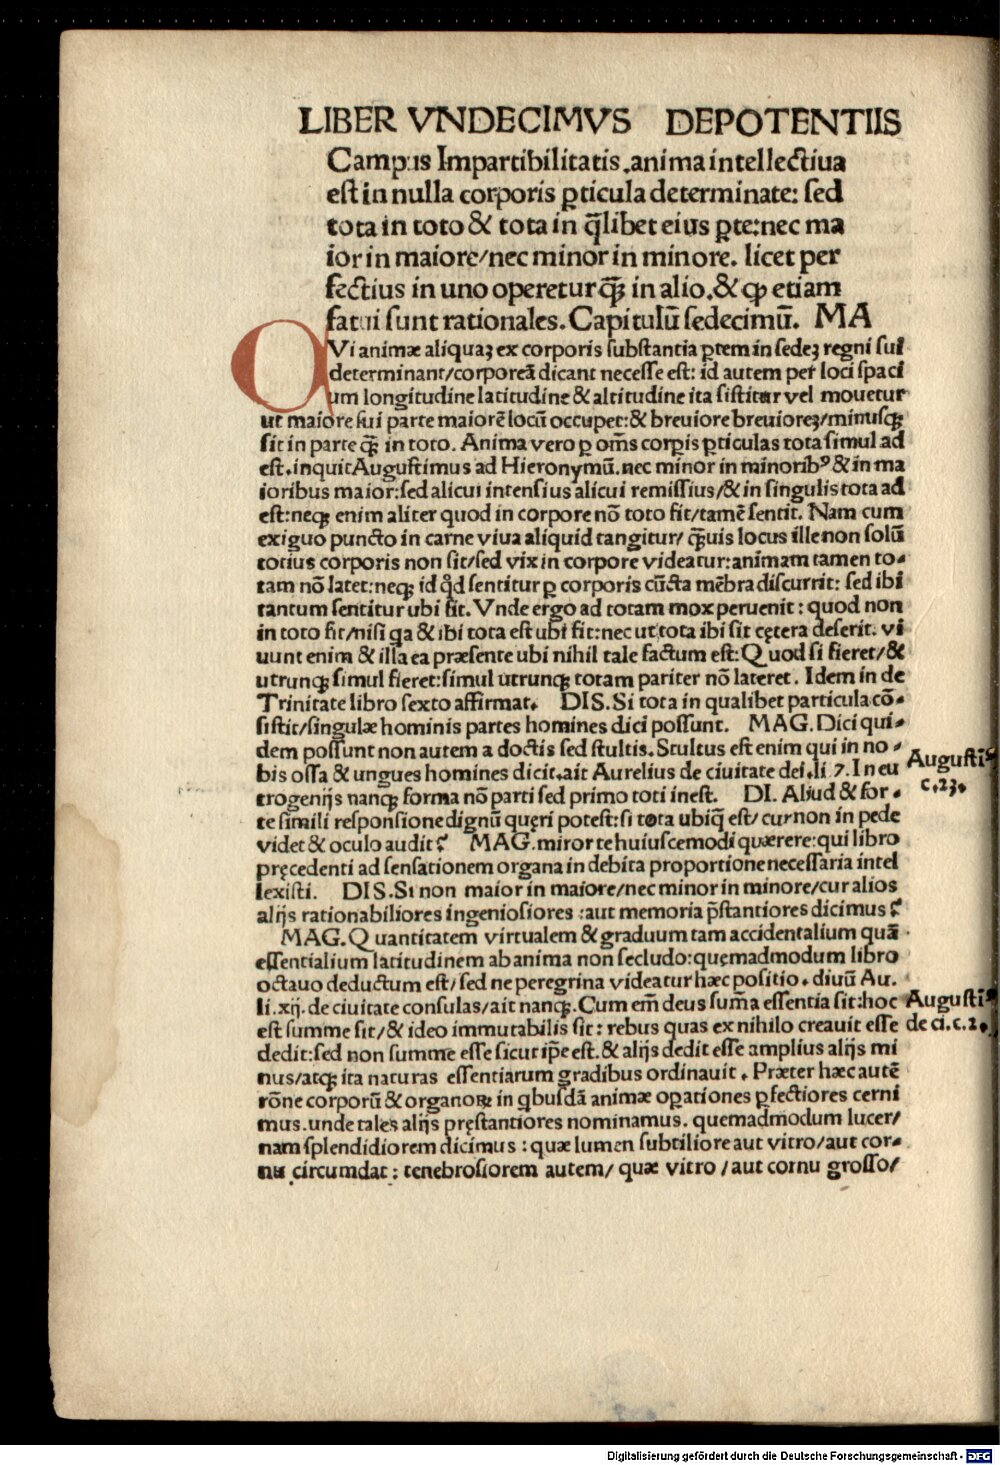 LIBER VNDECIMVS DEPOTENTIIS
Campus Impartibilitatis .anima intellectiua
est in nulla corporis ꝑticula determinate: sed
tota in toto & tota in q̃libet eius ꝑte:nec ma
ior in maiore/nec minor in minore. licet per
fectius in uno operetur q̃ꝫ in alio.& ꝙ etiam
fatui sunt rationales. Capitulũ sedecimũ. MA
QVi animæ aliquaꝫ ex corporis substantia ꝑtem in sedeꝫ regni sui
determinant/corporeã dicant necesse est: id autem per loci spaci
um longitudine latitudine & altitudine ita sistitur vel mouetur
ut maiore sui parte maiorẽ locũ occupet:& breuiore breuioreꝫ/minusqꝫ
sit in parte q̃ꝫ in toto. Anima vero ꝑ om̃s corꝑis ꝑticulas tota simul ad
est.inquit Augustimus ad Hieronymũ.nec minor in minoribꝰ & in ma
ioribus maior:sed alicui intensius alicui remissius/& in singulis tota ad
est:neqꝫ enim aliter quod in corpore nõ toto fit/tamẽ sentit. Nam cum
exiguo puncto in carne viua aliquid tangitur/ q̃ꝫuis locus ille non solũ
totius corporis non sit/sed vix in corpore videatur:animam tamen to-
tam nõ latet:neqꝫ id qd̃ sentitur ꝑ corporis cũcta mẽbra discurrit: sed ibi
tantum sentitur ubi fit. Vnde ergo ad totam mox peruenit : quod non
in toto fit/nisi qa & ibi tota est ubi fit:nec ut tota ibi sit cętera deserit. vi
uunt enim & illa ea præsente ubi nihil tale factum est: Quod si fieret/&
utrunqꝫ simul fieret:simul utrunqꝫ totam pariter nõ lateret. Idem in de
Trinitate libro sexto affirmat. DIS. Si tota in qualibet particula cõ-
sistit/singulæ hominis partes homines dici possunt. MAG. Dici qui-
dem possunt non autem a doctis sed stultis. Stultus est enim qui in no-
bis ossa & ungues homines dicit.ait Aurelius de ciuitate dei.li 7. In eu
Augusti⁹
c.23.
trogenijs nanqꝫ forma nõ parti sed primo toti inest. DI. Aliud & for-
te simili responsione dignũ quęri potest: si tota ubiq̃ est/ cur non in pede
videt & oculo audit? MAG. miror te huiuscemodi quærere:qui libro
pręcedenti ad sensationem organa in debita proportione necessaria intel
lexisti. DIS. Si non maior in maiore/nec minor in minore/cur alios
alijs rationabiliores ingeniosiores :aut memoria p̃stantiores dicimus?
MAG. Quantitatem virtualem & graduum tam accidentalium quã
essentialium latitudinem ab anima non secludo:quemadmodum libro
octauo deductum est/ sed ne peregrina videatur hæc positio. diuũ Au.
li.xij. de ciuitate consulas/ait nanqꝫ. Cum em̃ deus sum̃a essentia sit:hoc
Augusti⁹
est summe sit/& ideo immutabilis sit : rebus quas ex nihilo creauit esse
de ci.c.2.
dedit:sed non summe esse sicut ip̃e est.& alijs dedit esse amplius alijs mi
nus/atqꝫ ita naturas essentiarum gradibus ordinauit . Præter hæc autẽ
rõne corporũ & organoꝝ in qbusdã animæ oꝑationes ꝑfectiores cerni
mus.unde tales alijs pręstantiores nominamus. quemadmodum lucer/
nam splendidiorem dicimus : quæ lumen subtiliore aut vitro/aut cor-
nu circumdat : tenebrosiorem autem/ quæ vitro / aut cornu grosso/
Digitalisierung gefördert durch die Deutsche Forschungsgemeinschaft - DFG